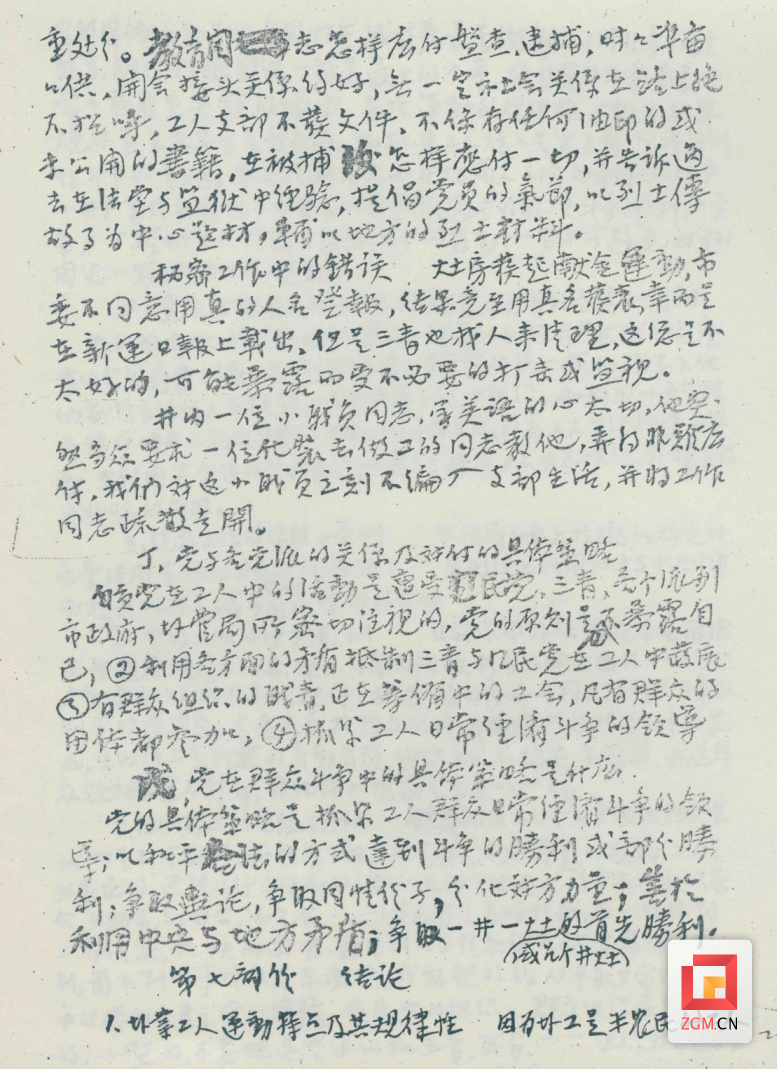 重处分。教育同志怎样应付盘查、逮捕,时々準备
口供,開会接头关係约好,無一定社会关係在路上绝
不招呼,工人支部不發文件、不保存任何油印的或
未公開的書籍,在被捕后怎样應付一切,并告诉过
去在法堂与监狱中经驗,提倡党员的氣節,以烈士傳
故事為中心题材,輔以地方的烈士材料。
秘密工作中的错误 灶房發起獻金運動,市
委不同意用真的人名登報,结果竟至用真名發表,幸而是
在新運日報上載出,但是三青也找人来清理,这總是不
太好的,可能暴露而受不必要的打击或监视。
井内一位小職员同志,学英语的心太切,他竟
然当众要求一位化装去做工的同志教他,弄的很難应
付,我们对这小职员立刻不編入支部生活,并将工作
同志疏散走開。
丁、党与各党派的关係及对付的具体策略
党在工人中的活動是遭受国民党,三青,各个派别
市政府,坋管局所密切注視的,党的原则是不暴露自
己;②利用各方面的矛盾抵制三青与国民党在工人中發展
③有群众组织的职责,正在筹備中的工会,凡有群众的
团体都参加,④抓紧工人日常经濟斗争的领導
戊,党在群众斗争中的具体策略是什麽.
党的具体策略是抓紧工人群众日常经濟斗争的领
導;以和平合法的方式達到斗争的勝利或部分勝
利;争取輿论,争取同情份子,分化对方力量;善於
利用中央与地方矛盾;争取一井一灶的首先勝利。
(或几井灶)
第七部份 结论
1.坋業工人運動特点及其規律性 因為坋工是半农民
ZGM.CN